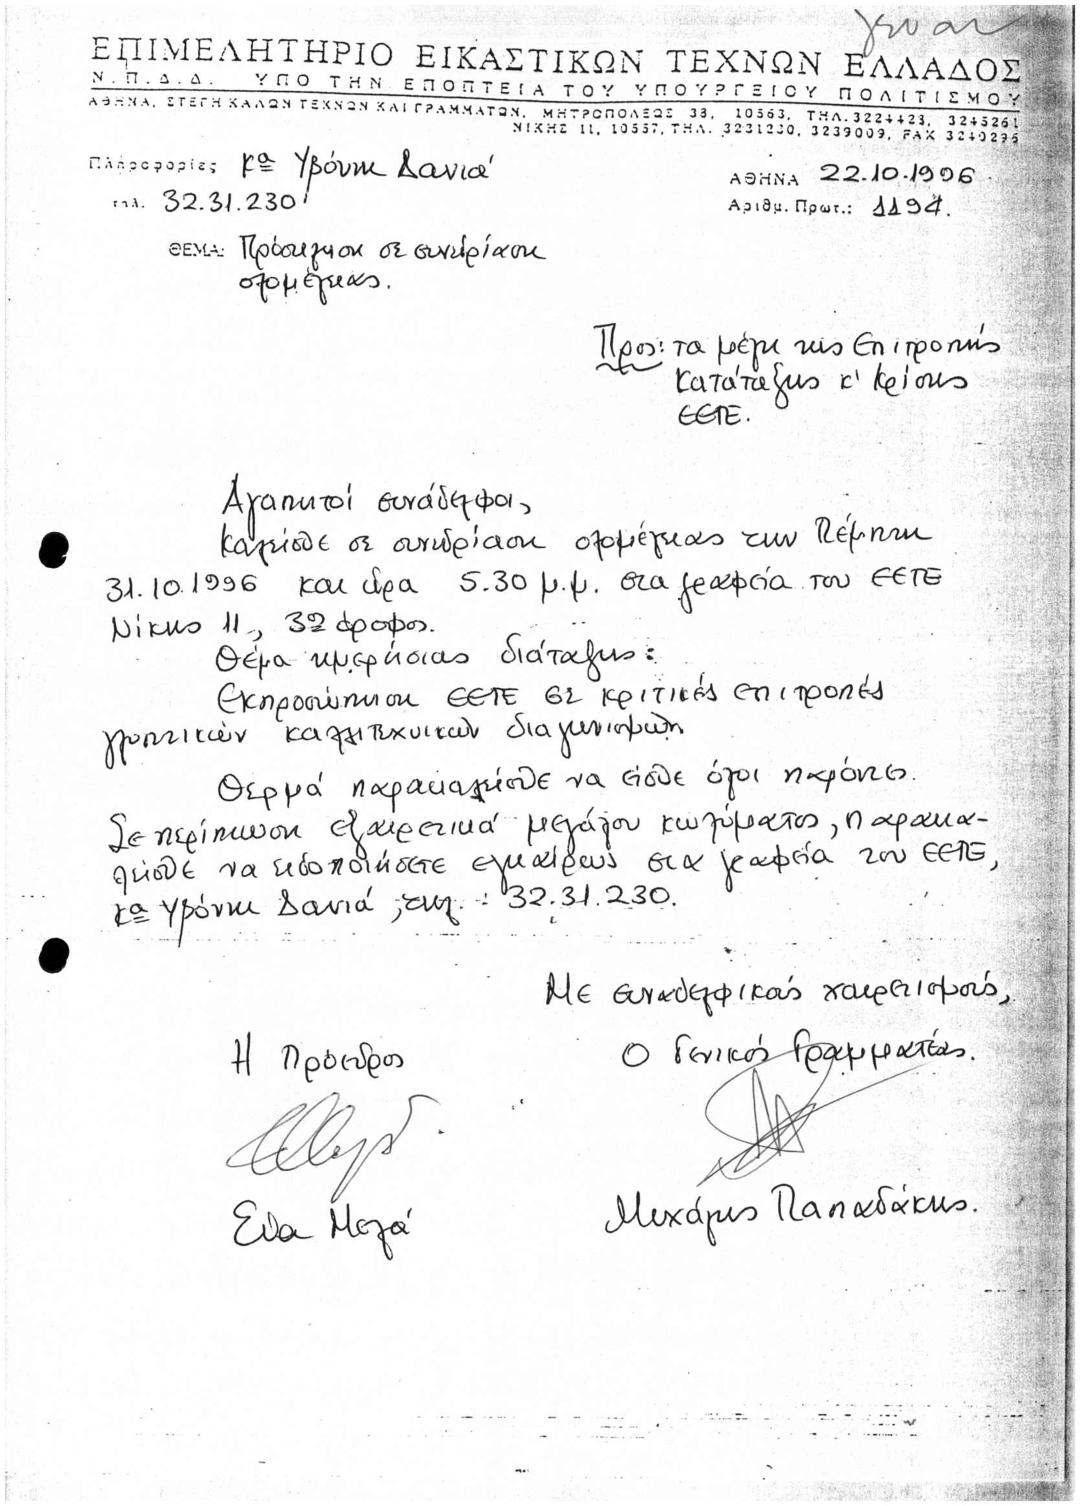 ΕΠΙΜΕΛΗΤΗΡΙΟ ΕΙΚΑΣΤΙΚΩΝ ΤΕΧΝΩΝ ΕΛΛΑΔΟΣ
Ν.Π.Δ.Δ. ΥΠΟ ΤΗΝ ΕΠΟΠΤΕΙΑ ΤΟΥ ΥΠΟΥΡΓΕΙΟΥ ΠΟΛΙΤΙΣΜΟΥ
ΑΘΗΝΑ, ΣΤΕΓΗ ΚΑΛΩΝ ΤΕΧΝΩΝ ΚΑΙ ΓΡΑΜΜΑΤΩΝ, ΜΗΤΡΟΠΟΛΕΩΣ 38, 10563, ΤΗΛ. 3224423, 3245261
ΝΙΚΗΣ 11, 10557, ΤΗΛ. 3231230, 3239009, FAX 3240296
Πληροφορίες κα Υβόννη Δανιά
τηλ. 32.31.230
ΑΘΗΝΑ 22.10.1996
Αριθμ. Πρωτ.: 1194.
ΘΕΜΑ: Πρόσκληση σε συνεδρίαση
ολομέλειας.
Προς: τα μέλη της Επιτροπής
Κατάταξης κ' Κρίσης
ΕΕΤΕ.
Αγαπητοί συνάδελφοι,
Καλείσθε σε συνεδρίαση ολομέλειας την Πέμπτη
31.10.1996 και ώρα 5.30 μ.μ. στα γραφεία του ΕΕΤΕ
Νίκης 11, 3ος όροφος.
Θέμα ημερήσιας διάταξης:
Εκπροσώπηση ΕΕΤΕ σε κριτικές επιτροπές
γλυπτικών καλλιτεχνικών διαγωνισμών
Θερμά παρακαλείσθε να είσθε όλοι παρόντες.
Σε περίπτωση εξαιρετικά μεγάλου κωλύματος, παρακα-
λείσθε να ειδοποιήσετε εγκαίρως στα γραφεία του ΕΕΤΕ,
κα Υβόννη Δανιά, τηλ. : 32.31.230.
Με συναδελφικούς χαιρετισμούς,
Η Πρόεδρος
Ο Γενικός Γραμματέας.
Εύα Μελά
Μιχάλης Παπαδάκης.